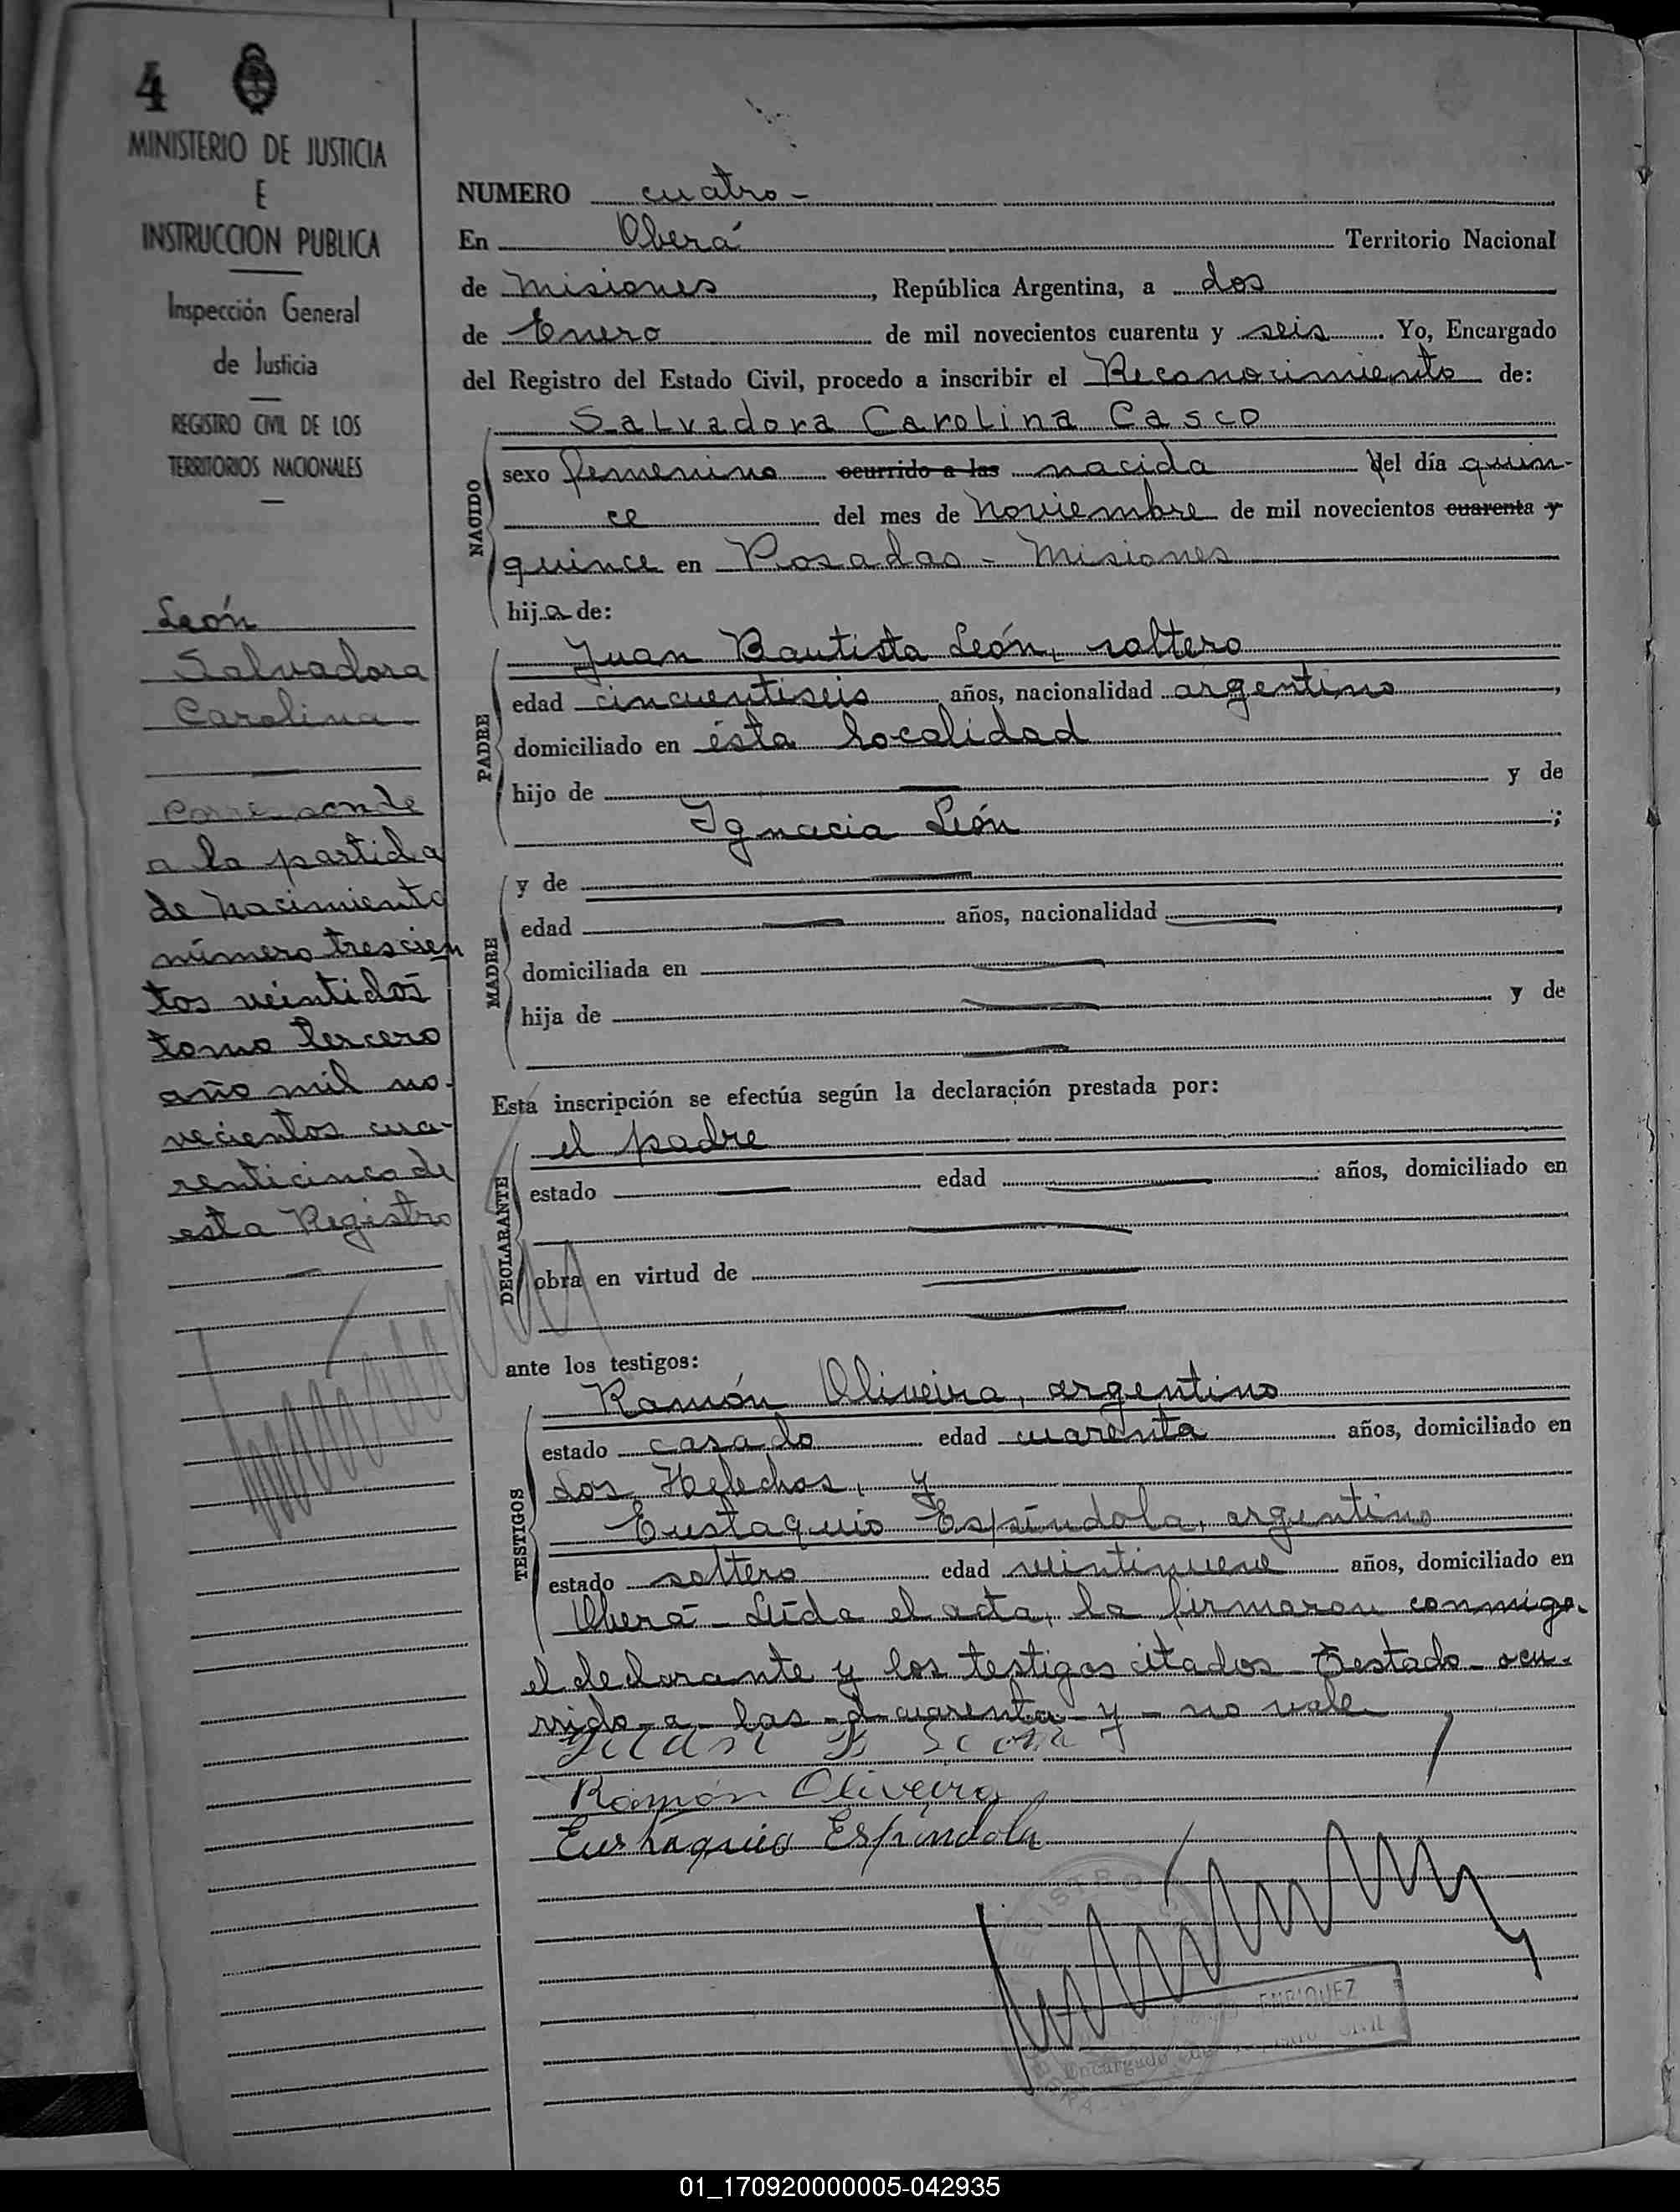 4
MINISTERIO DE JUSTICIA
E
INSTRUCCION PUBLICA
Inspección General
de Justicia
REGISTRO CIVIL DE LOS
TERRITORIOS NACIONALES
León
Salvadora
Carolina
Corresponde
a la partida
de Nacimiento
número trescien
tos veintidós
tomo tercero
año mil no-
vecientos cua-
renticinco de
esta Registro
NUMERO cuatro-
En Oberá Territorio Nacional
de Misiones, República Argentina, a dos
de Enero de mil novecientos cuarenta y seis. Yo, Encargado
del Registro del Estado Civil, procedo a inscribir el Reconocimiento de:
Salvadora Carolina Casco
NACIDO
sexo femenino ocurrido a las nacida del día quin-
ce del mes de Noviembre de mil novecientos cuarenta y
quince en Posadas - Misiones
hija de:
PADRE
Juan Bautista León, soltero
edad cincuentiseis años, nacionalidad argentino,
domiciliado en ésta localidad
hijo de — y de
Ignacia León;
MADRE
y de —
edad — años, nacionalidad —,
domiciliada en —
hija de — y de
—
Esta inscripción se efectúa según la declaración prestada por:
DECLARANTE
el padre
estado — edad — años, domiciliado en
—
obra en virtud de —
—
ante los testigos:
TESTIGOS
Ramón Oliveira, argentino
estado casado edad cuarenta años, domiciliado en
Los Helechos, y
Eustaquio Espíndola, argentino
estado soltero edad veintinueve años, domiciliado en
Oberá - Leída el acta, la firmaron conmigo
el declarante y los testigos citados - Testado - ocu-
rrido - a - las - d - cuarenta - y - no vale
Ramón Oliveira
Eustaquio Espíndola
REGISTRO
ENRIQUEZ
Encargado
CIVIL
01_170920000005-042935